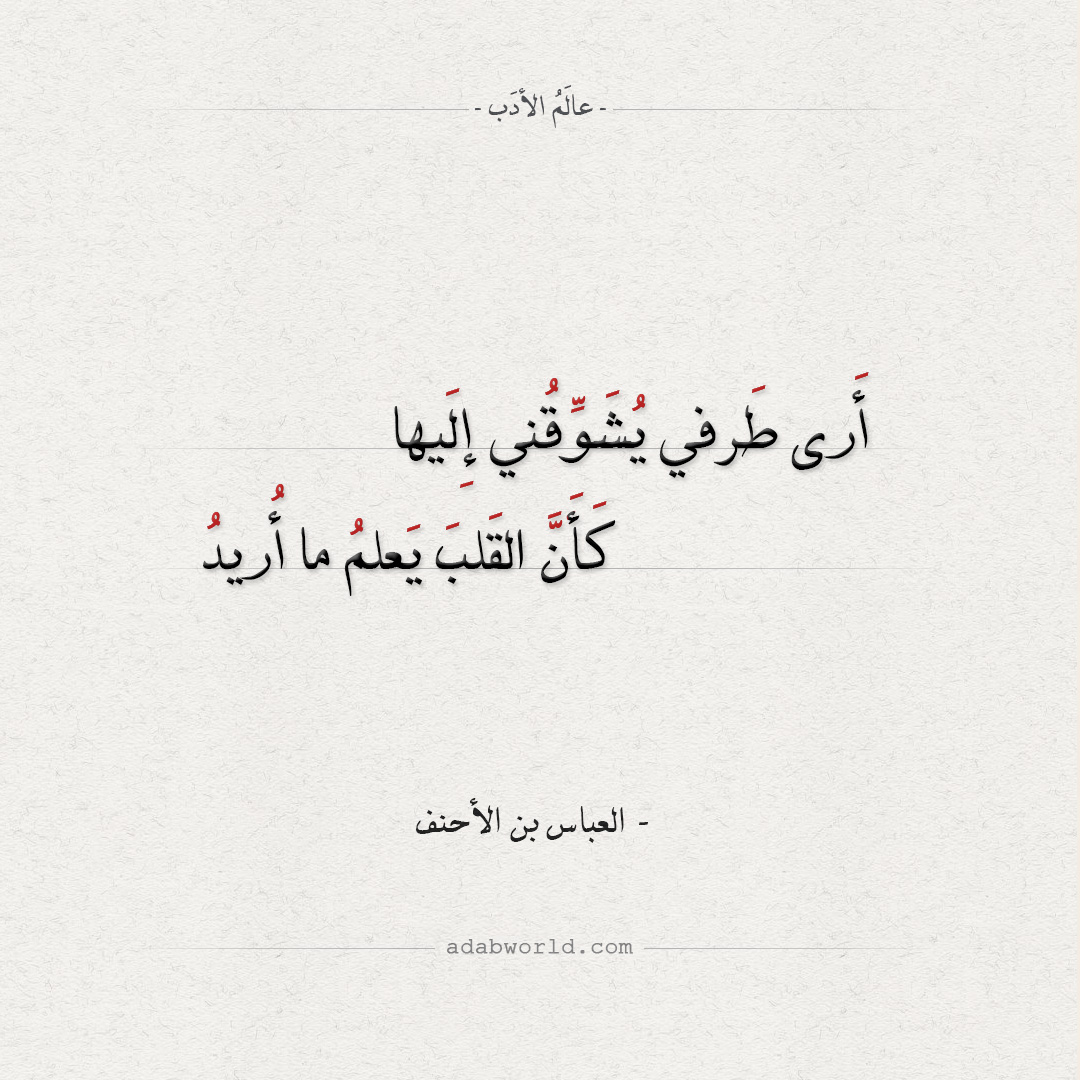 - عالَمُ الأدَب -
أَرى طَرفي يُشَوِّقُني إِلَيها
كَأَنَّ القَلبَ يَعلمُ ما أُريدُ
- العباس بن الأحنف
adabworld.com